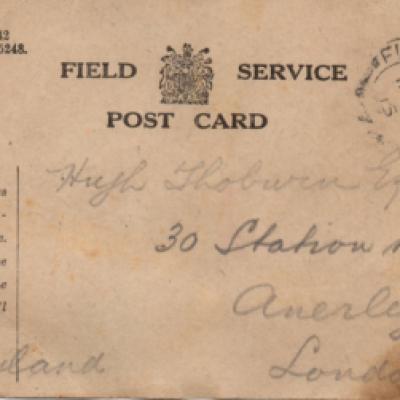 42
5248.
FIELD SERVICE
POST CARD
FI
Hugh Thoburn Esq
30 Station
Anerley
London